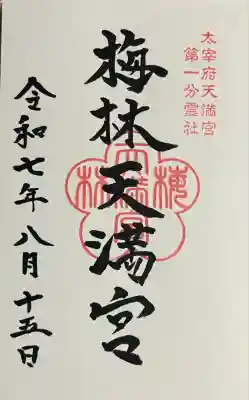 太宰府天満宮
第一分霊社
梅林天満宮
令和七年八月十五日